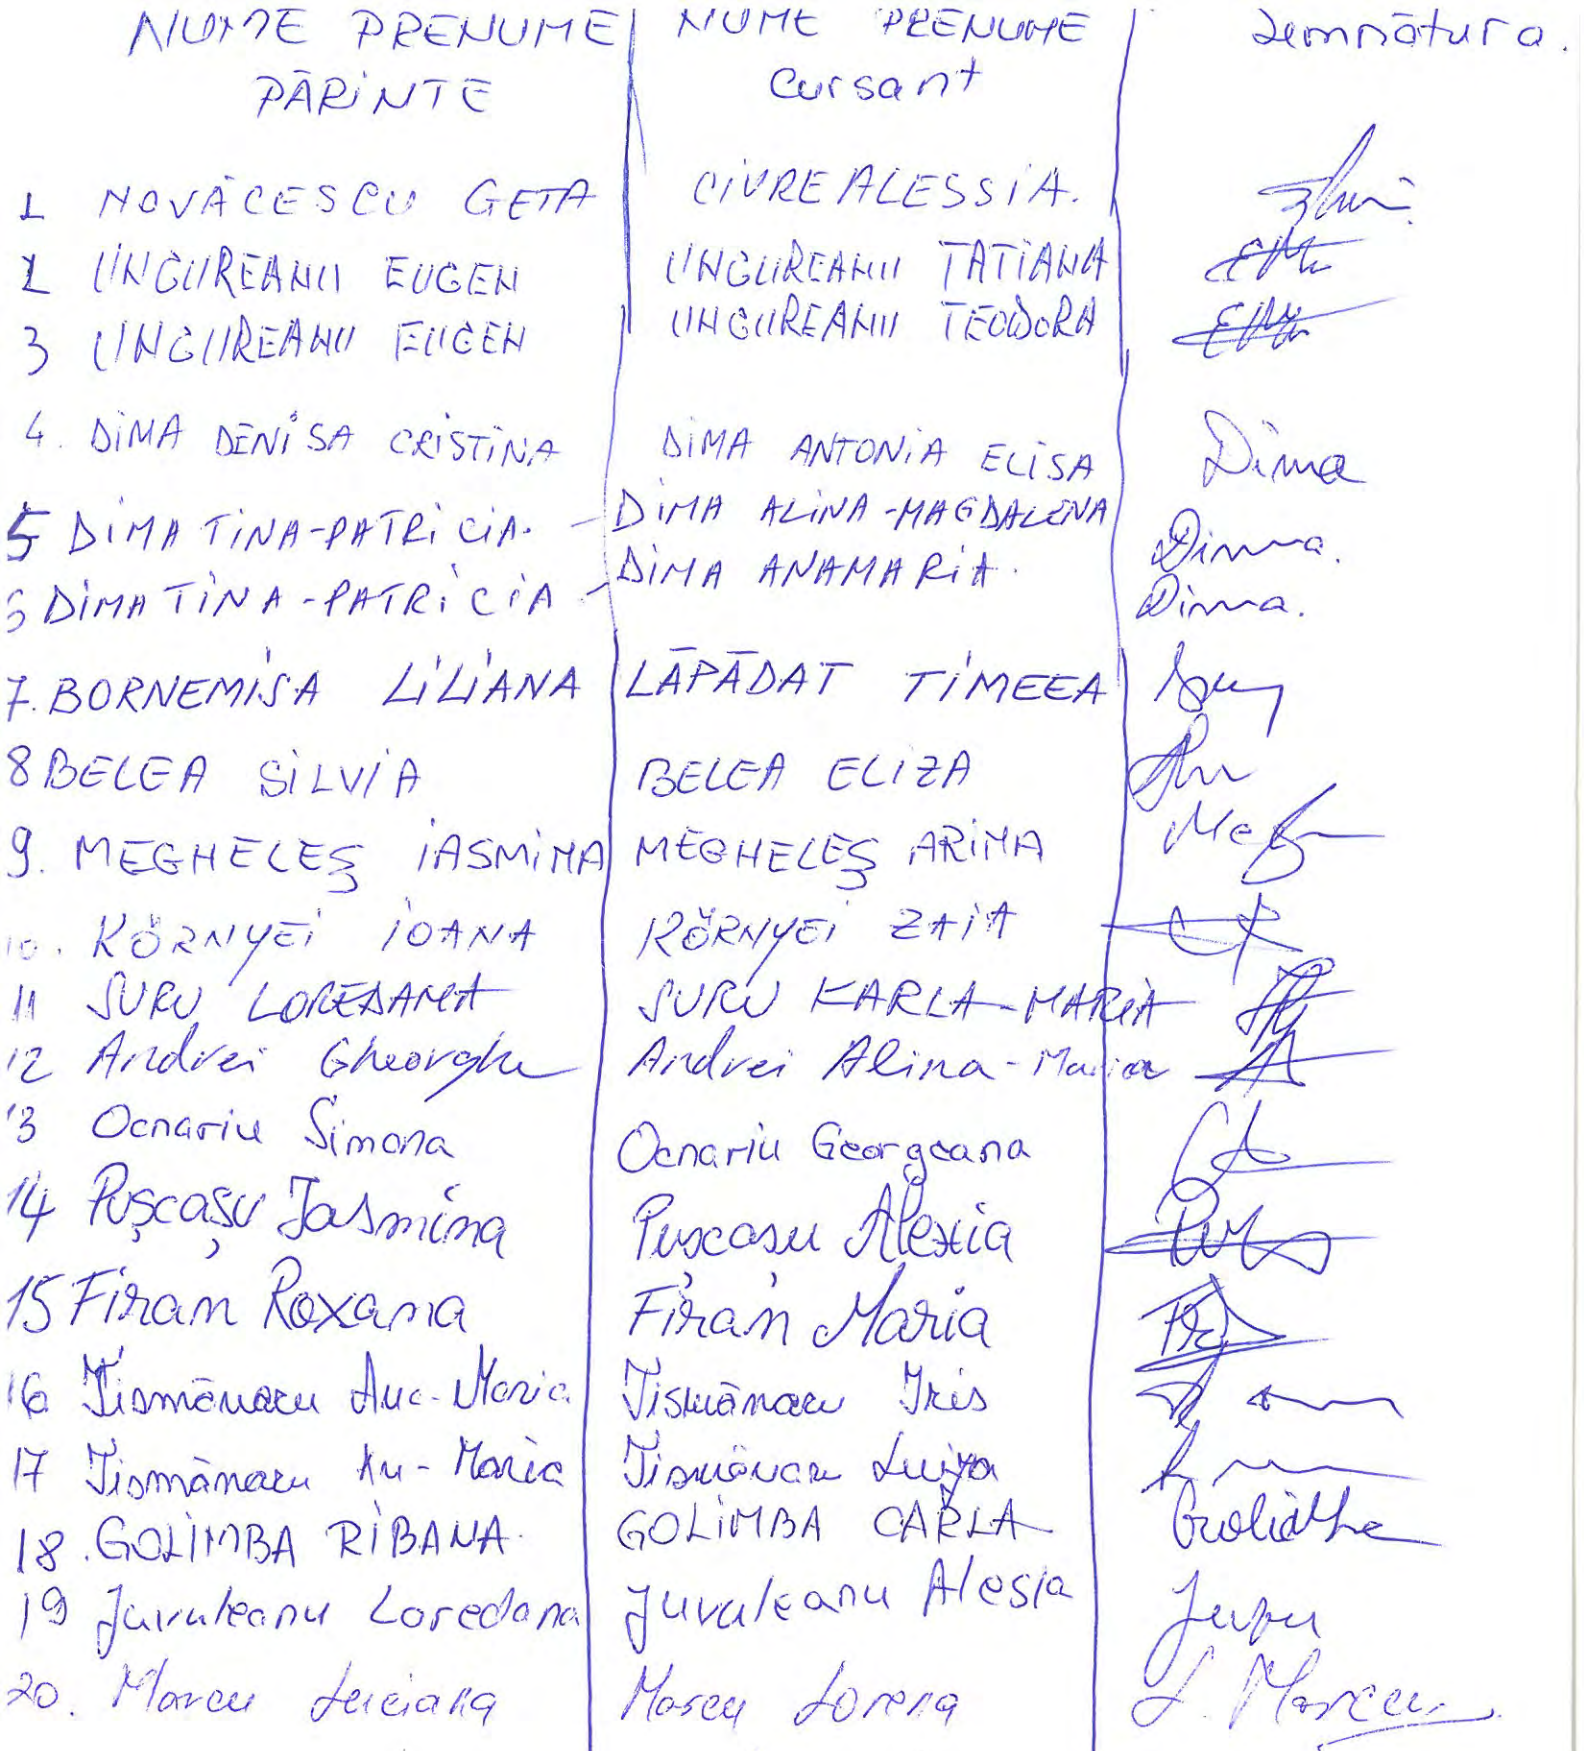 NUME PRENUME PĂRINTE NUME PRENUME cursant Semnătura.
1 NOVĂCESCU GETA CIVRE ALESSIA.
2 UNGUREANU EUGEN UNGUREANU TATIANA
3 UNGUREANU EUGEN UNGUREANU TEODORA
4. DIMA DENISA CRISTINA DIMA ANTONIA ELISA Dima
5 DIMA TINA-PATRICIA. - DIMA ALINA-MAGDALENA Dima.
6 DIMA TINA-PATRICIA - DIMA ANAMARIA. Dima.
7. BORNEMISA LILIANA LĂPĂDAT TIMEEA
8 BELEA SILVIA BELEA ELIZA
9. MEGHELEȘ IASMINA MEGHELEȘ ARINA
10. KÖRNYEI IOANA KÖRNYEI ZAIA
11 SURU LOREDANA SURU KARLA-MARIA
12 Andrei Gheorghe Andrei Alina-Maria
13 Ocnariu Simona Ocnariu Georgeana
14 Pușcașu Iasmina Pușcașu Alexia
15 Firan Roxana Firan Maria
16 Tismănaru Ana-Maria Tismănaru Iris
17 Tismănaru An-Maria Tismănaru Luiza
18. GOLIMBA RIBANA. GOLIMBA CARLA
19 Juvuleanu Loredana Juvuleanu Alesia
20. Marcu Luciana Marcu Lorena L. Marcu